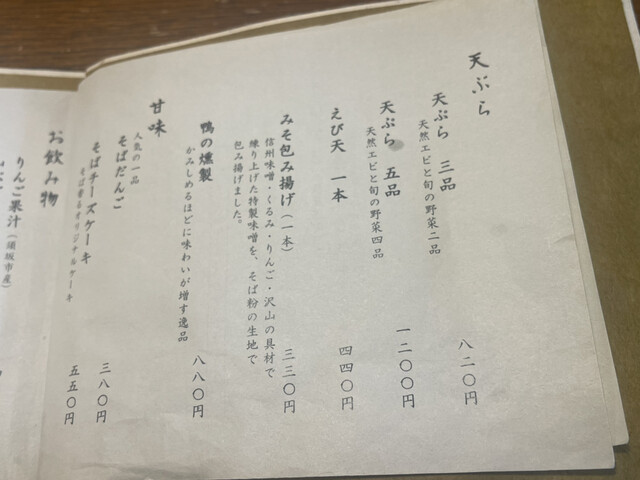 天ぷら
天ぷら 三品 八二〇円
天然エビと旬の野菜二品
天ぷら 五品 一二〇〇円
天然エビと旬の野菜四品
えび天 一本 四四〇円
みそ包み揚げ（一本） 三三〇円
信州味噌・くるみ・りんご・沢山の具材で
練り上げた特製味噌を、そば粉の生地で
包み揚げました。
鴨の燻製 八八〇円
かみしめるほどに味わいが増す逸品
甘味
人気の一品
そばだんご 三八〇円
そばチーズケーキ 五五〇円
そば香るオリジナルケーキ
お飲み物
りんご果汁（須坂市産）